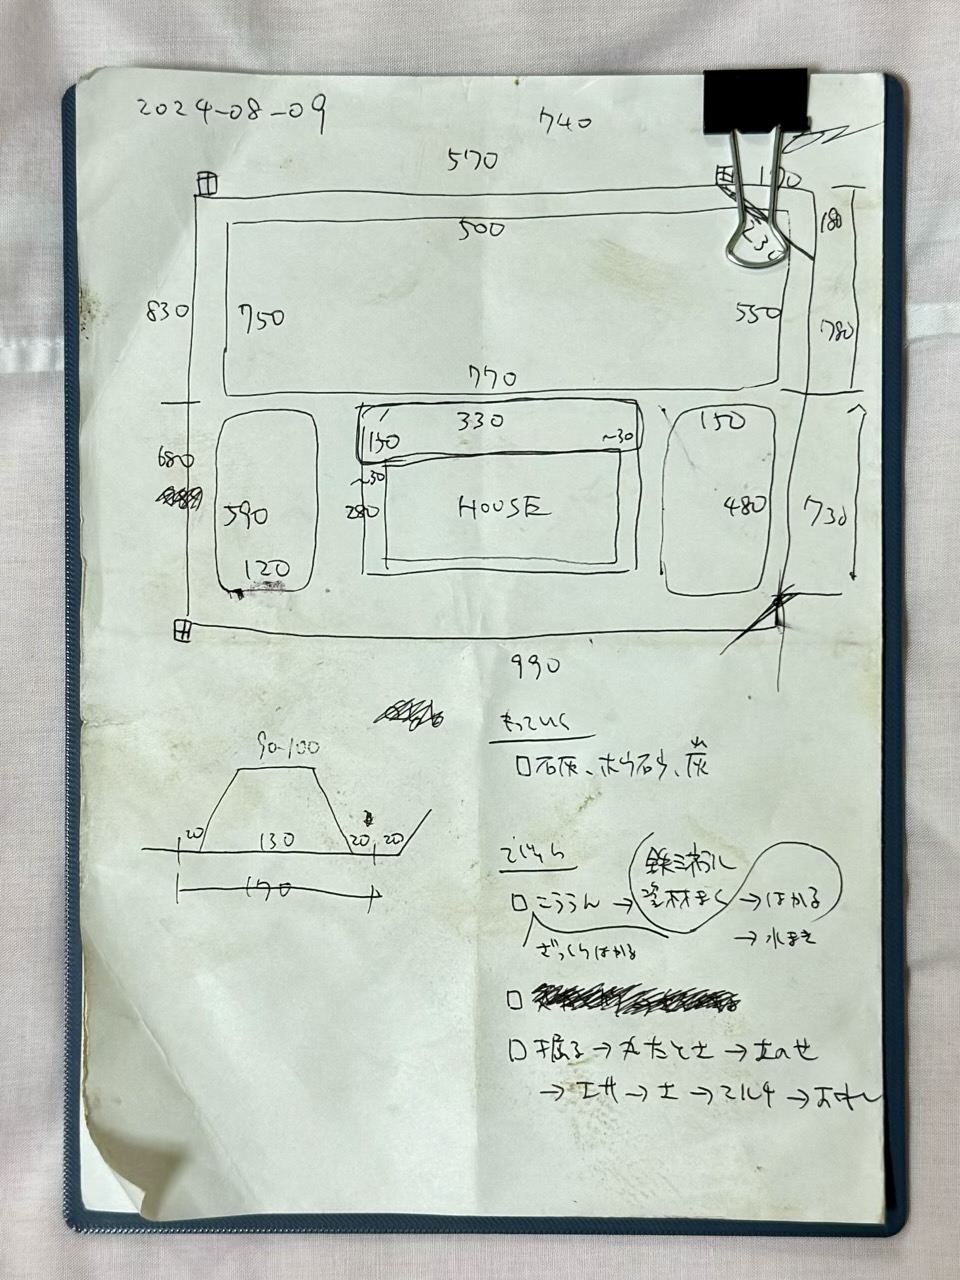 2024-08-09
740
570
170
500
230
180
830
750
550
780
770
330
150
150
~30
680
~30
590
280
HOUSE
480
730
120
990
90-100
20
130
20
20
170
もっていく
□石灰、ホウ砂、炭
□こううん→
ミネラル
材まく
→はかる
→水まき
ざっくりはかる
□
□掘る→
→土のせ
→エサ→土→マルチ→